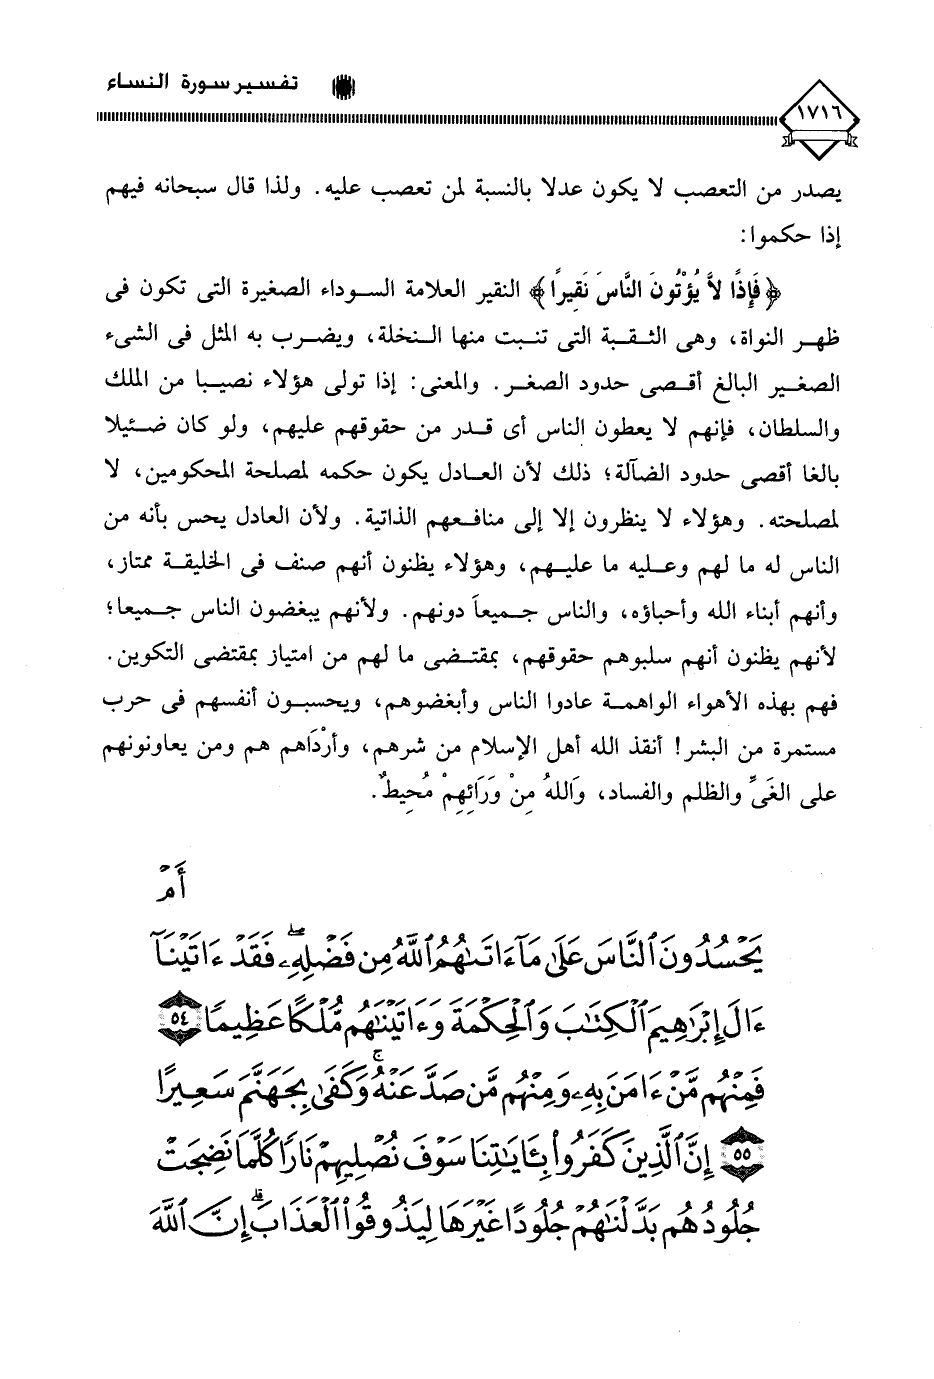 تفسير سورة النساء
١٧١٦
يصدر من التعصب لا يكون عدلا بالنسبة لمن تعصب عليه. ولذا قال سبحانه فيهم
إذا حكموا:
﴿فَإِذًا لاَّ يُؤْتُونَ النَّاسَ نَقِيرًا﴾ النقير العلامة السوداء الصغيرة التى تكون فى
ظهر النواة، وهى الثقبة التى تنبت منها النخلة، ويضرب به المثل فى الشىء
الصغير البالغ أقصى حدود الصغر. والمعنى: إذا تولى هؤلاء نصيبا من الملك
والسلطان، فإنهم لا يعطون الناس أى قدر من حقوقهم عليهم، ولو كان ضئيلا
بالغا أقصى حدود الضآلة؛ ذلك لأن العادل يكون حكمه لمصلحة المحكومين، لا
لمصلحته. وهؤلاء لا ينظرون إلا إلى منافعهم الذاتية. ولأن العادل يحس بأنه من
الناس له ما لهم وعليه ما عليهم، وهؤلاء يظنون أنهم صنف فى الخليقة ممتاز،
وأنهم أبناء الله وأحباؤه، والناس جميعاً دونهم. ولأنهم يبغضون الناس جميعا؛
لأنهم يظنون أنهم سلبوهم حقوقهم، بمقتضى ما لهم من امتياز بمقتضى التكوين.
فهم بهذه الأهواء الواهمة عادوا الناس وأبغضوهم، ويحسبون أنفسهم فى حرب
مستمرة من البشر! أنقذ الله أهل الإسلام من شرهم، وأرْدَاهم هم ومن يعاونونهم
على الغَىِّ والظلم والفساد، وَاللهُ مِنْ وَرَائِهِمْ مُحِيطٌ.
أَمْ
يَحْسُدُونَ ٱلنَّاسَ عَلَىٰ مَآ ءَاتَىٰهُمُ ٱللَّهُ مِن فَضْلِهِۦۖ فَقَدْ ءَاتَيْنَآ
ءَالَ إِبْرَٰهِيمَ ٱلْكِتَٰبَ وَٱلْحِكْمَةَ وَءَاتَيْنَٰهُم مُّلْكًا عَظِيمًا ٥٤
فَمِنْهُم مَّنْ ءَامَنَ بِهِۦ وَمِنْهُم مَّن صَدَّ عَنْهُۚ وَكَفَىٰ بِجَهَنَّمَ سَعِيرًا
٥٥ إِنَّ ٱلَّذِينَ كَفَرُوا۟ بِـَٔايَٰتِنَا سَوْفَ نُصْلِيهِمْ نَارًا كُلَّمَا نَضِجَتْ
جُلُودُهُم بَدَّلْنَٰهُمْ جُلُودًا غَيْرَهَا لِيَذُوقُوا۟ ٱلْعَذَابَۗ إِنَّ ٱللَّهَ